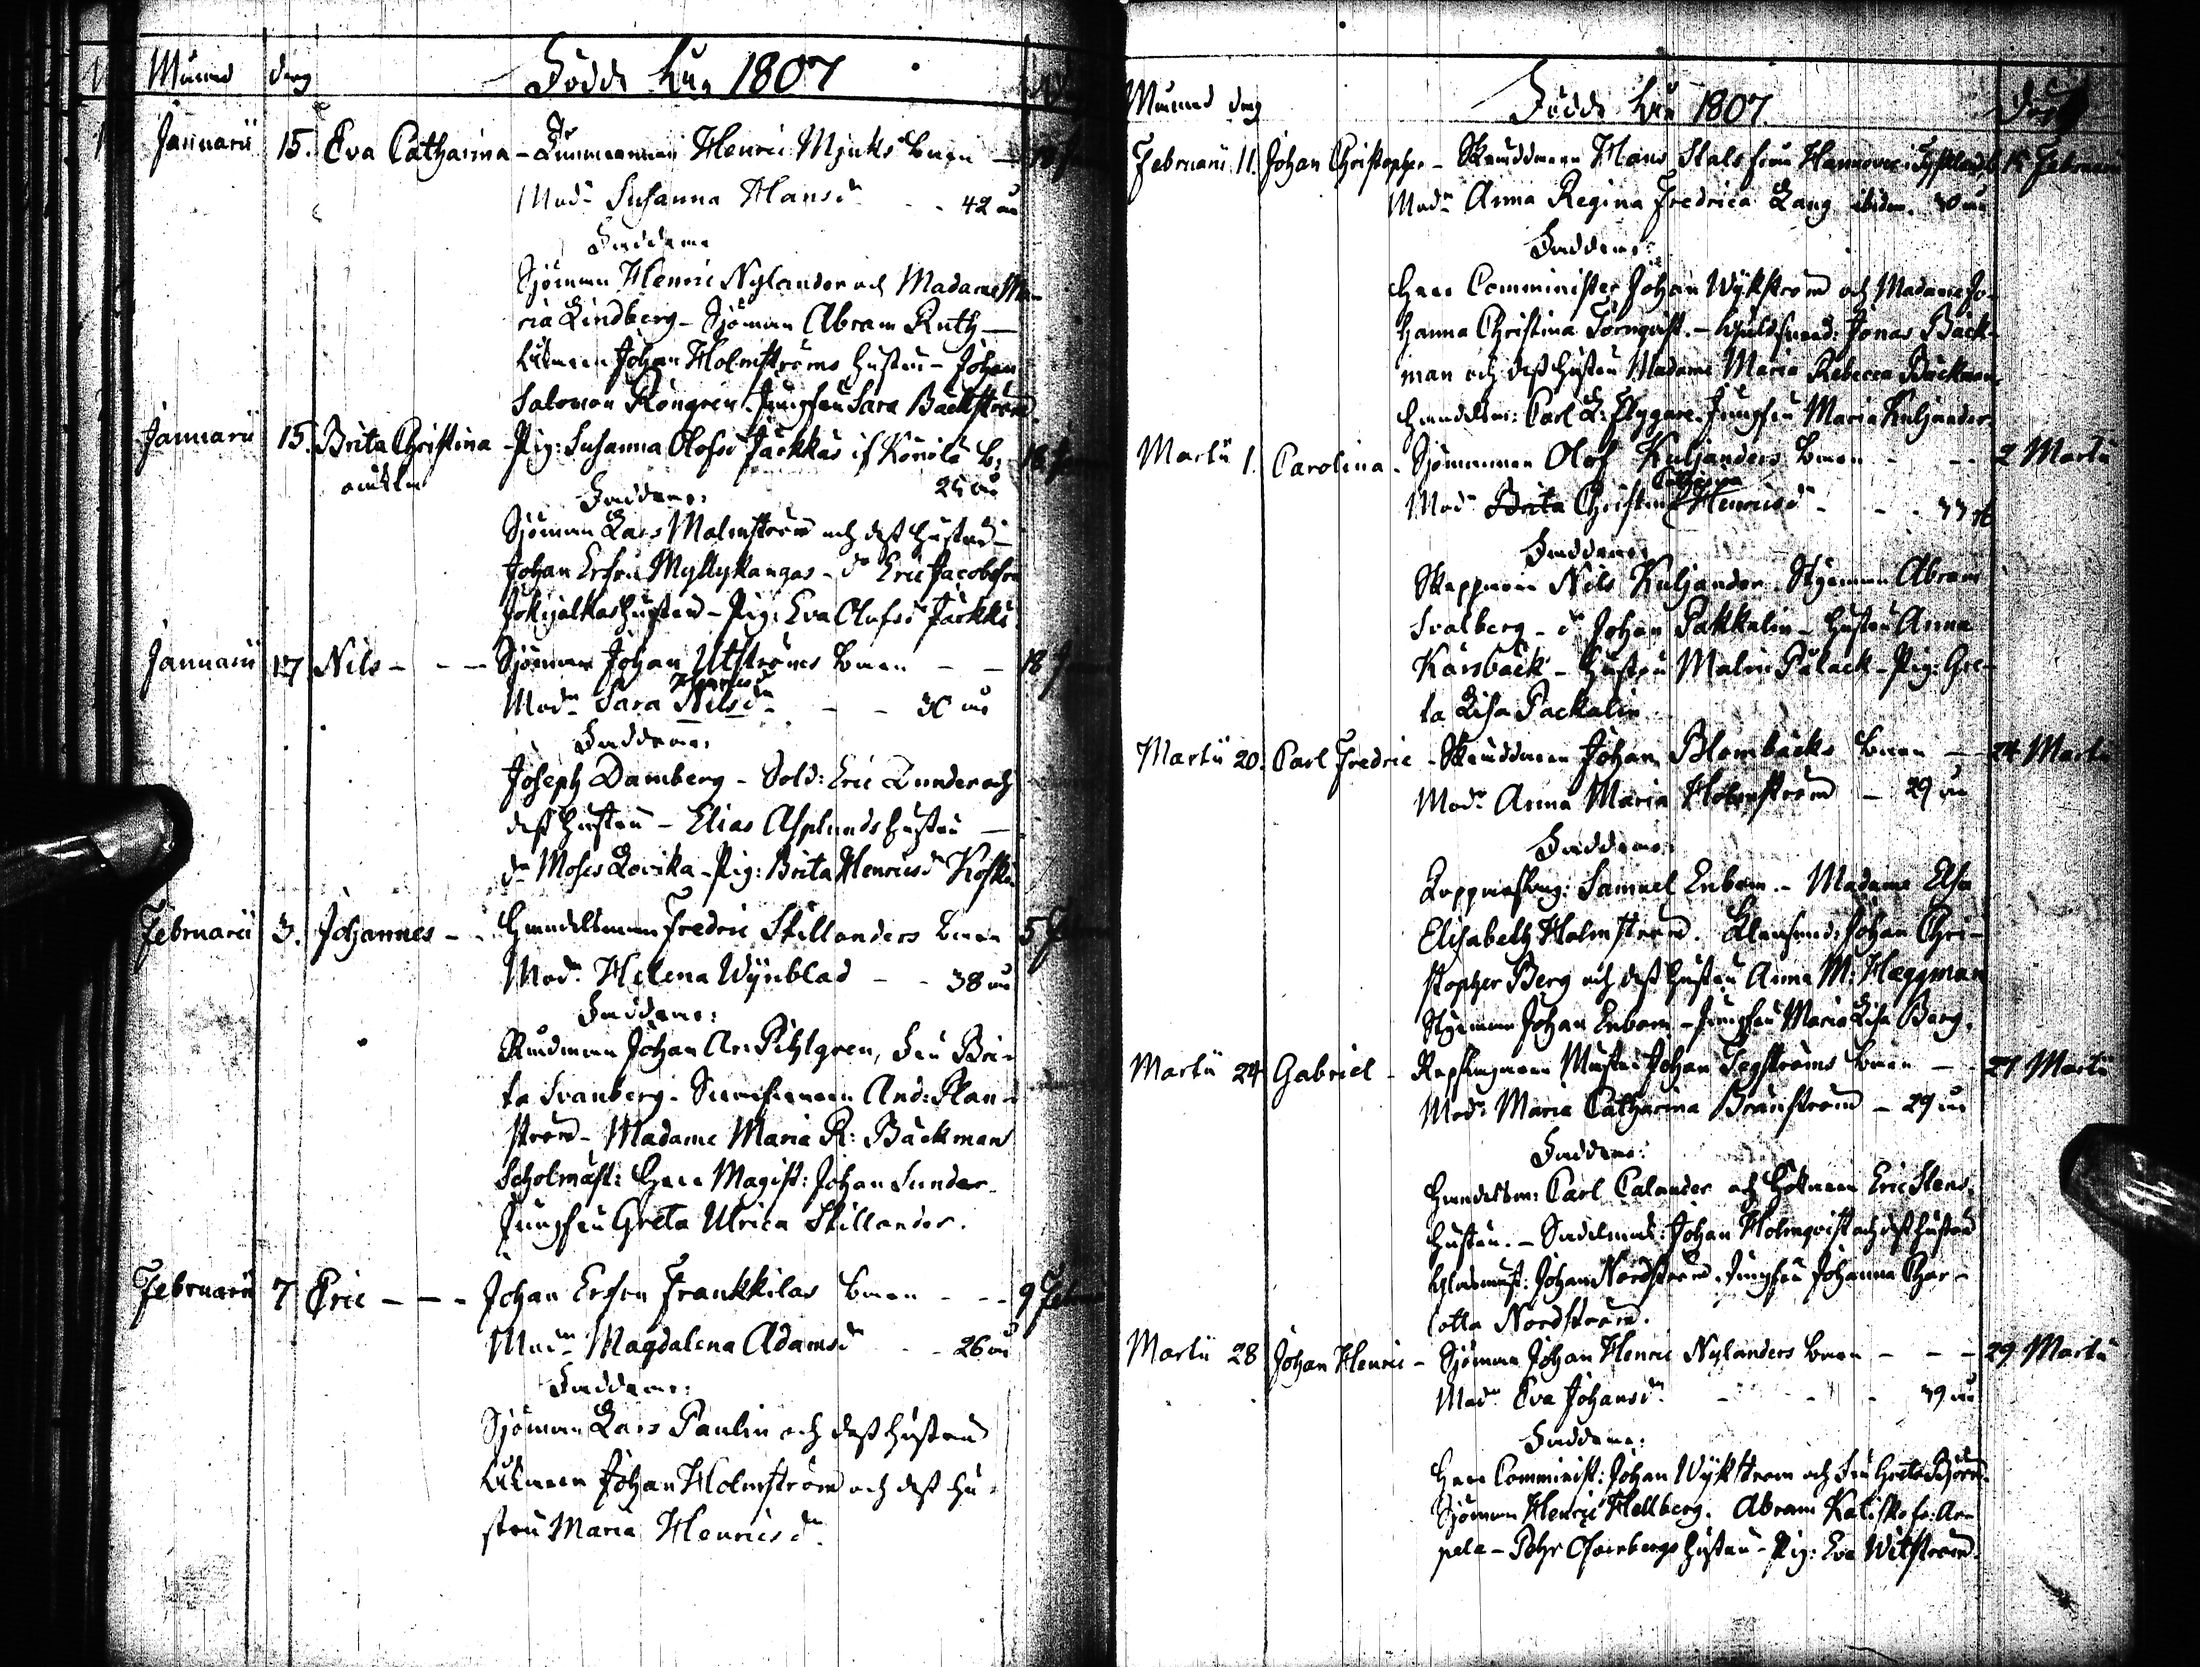 Månad dag Födde År 1807
Januarii 15. Eva Catharina - Timmerman Henric Mjuks barn
Modn Susanna Hansdr 42 år
Faddrarne
Sjöman Henric Nylander och Madame Ma-
ria Lindberg - Sjöman Abram Ruth -
Johan Holmströms hustru - Johan
Salomon Röngren. Jungfru Sara Bäckström
Januarii 15. Brita Christina - Pig: Susanna Olofsdr Jackkas if B:
oäkta 25 år
Faddrarne:
Sjöman Lars Malmström och dess hustru -
Johan Ersson Myllykangas - do Eric Jacobsson
Jokijalkas hustru - Pig: Eva Olofsdr Jackku
Januarii 17 Nils - - - Sjöman Johan Utströms barn - - 18
Henricsdr
Modn Sara Nilsdn - - 30 år
Faddrarne:
Joseph Damberg - Sold: Eric Lunder och
dess hustru - Elias Asplunds hustru -
do Moses Lovika - Pig: Brita Henricsdn Koski
Februarii 3. Johannes - - Handelsman Fredric Skillanders barn 5
Modn Helena Wynblad - - 38 år
Faddrarne:
Rådman Johan Ar: Pihlgren, Fru Bri-
ta Svanberg. And: Plan-
ström - Madame Maria R: Bäckman
Scholmäst: Herr Magist: Johan Sunder.
Jungfru Greta Ulrica Skillander.
Februarii 7 Eric - - - Johan Ersson Frankkilas barn - - - 9 Febru
Modn Magdalena Adamsdr - - 26 år
Faddrarne:
Sjöman Lars Paulin och dess hustru
Johan Holmström och dess hu-
stru Maria Henricsdn
Månad dag Födde År 1807.
Februarii 11. Johan Christopher - Skräddaren Hans Stals från Hannover i Tyskland b 15 Februarii
Modn Anna Regina Fredrica Lang ibidem. 30 år
Faddrarne:
Herr Comminister Johan Wykström och Madame Jo-
hanna Christina Törnqvist. - Guldsmed: Jonas Bäck-
man och dess hustru Madame Maria Rebecca Bäckman.
Handelsm: Carl L: Flygare. Jungfru Maria Kuljander.
Martii 1. Carolina - Sjömannen Olof Kuljanders barn - - - 2 Martii
Catharina
Modn Brita Christina Henricsdr - - - 33 år
Faddrarne:
Skepparen Nils Kuljander. Styrman Abram
Svalberg - do Johan Pakkalin - hustru Anna
Kärsbäck - hustru Malin Palack - Pig: Gre-
ta Lisa Packalin.
Martii 20. Carl Fredric - Skräddaren Johan Blombäcks barn - 24 Martii
Modn Anna Maria Holmström - 29 år
Faddrarne:
Samuel Enbom. - Madame Elsa
Elisabeth Holmström. Johan Chri-
stopher Berg och dess hustru Anna M: Hæggman
Styrman Johan Enbom - Jungfru Maria Lisa Berg.
Martii 24 Gabriel - Johan Segströms barn - - 27 Martii
Modn Maria Catharina Branström - 29 år
Faddrarne:
Handelsm: Carl Calander och Eric Stens
hustru. - Sadelmak: Johan Holmqvist och dess hustru
Glasmäst: Johan Nordström. Jungfru Johanna Char-
lotta Nordström.
Martii 28 Johan Henric - Sjöman Johan Henric Nylanders barn - - - 29 Martii
Modn Eva Johansdr - - - 39 år
Faddrarne:
Herr Comminist: Johan Wykström och Fru Greta Björn.
Sjöman Henric Hellberg. Abram
pela - Pehr hustru - Pig: Eva Witström.